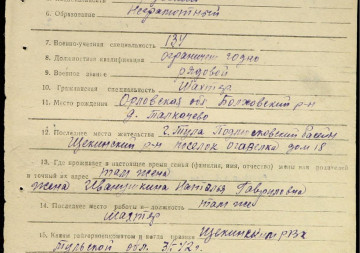 6. Образование неграмотный
7. Военно-учетная специальность 134
8. Должностная квалификация огранич. годно
9. Военное звание рядовой
10. Гражданская специальность Шахтер
11. Место рождения Орловская обл Болховский р-н
д. Талкачево
12. Последнее место жительства г. Тула
Щекинский р-н поселок дом 18
13. Где проживает в настоящее время семья (фамилия, имя, отчество) жены или родителей
и точный их адрес там жена
жена Наталья Гавриловна
14. Последнее место работы и должность там же
Шахтер
15. Каким райвоенкоматом и когда призван РВК
Тульской обл.